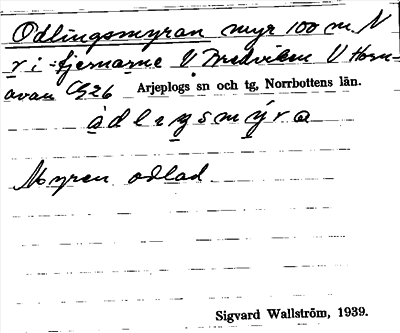 Odlingsmyran myr 100 m N
r i tjernarne V Bredviken V Horn-
avan Cg26 Arjeplogs sn och tg, Norrbottens län.
ådlıŋsmýra
Myren odlad.
Sigvard Wallström, 1939.